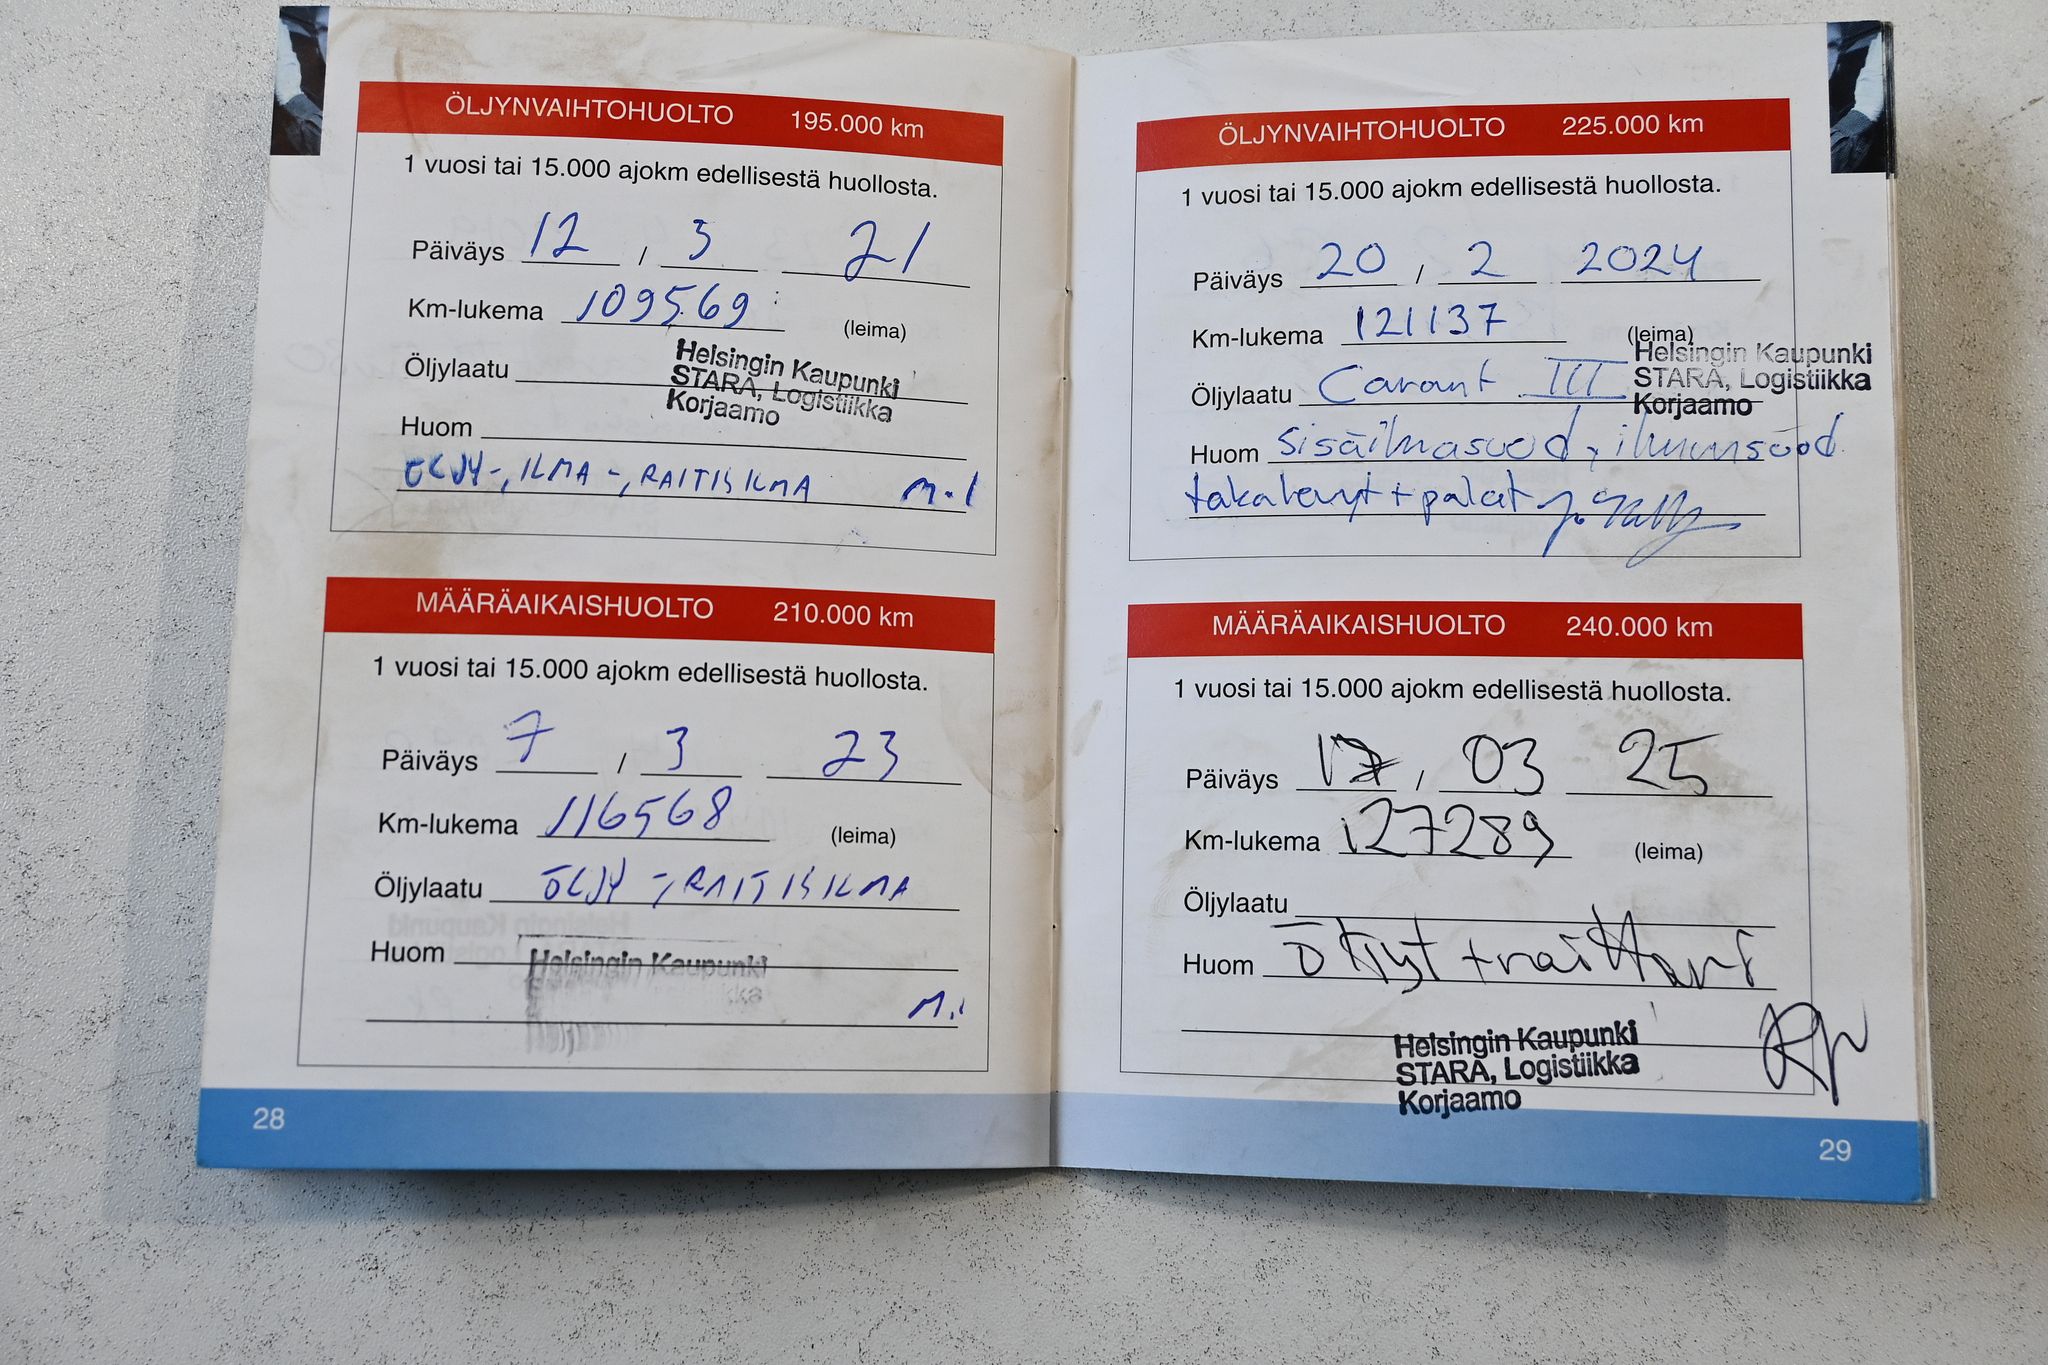 ÖLJYNVAIHTOHUOLTO 195.000 km
1 vuosi tai 15.000 ajokm edellisestä huollosta.
Päiväys 12 / 3 21
Km-lukema 109569 (leima)
Helsingin Kaupunki
Öljylaatu
STARA, Logistiikka
Korjaamo
Huom
ÖLJY-, ILMA-, RAITISILMA M.I
MÄÄRÄAIKAISHUOLTO 210.000 km
1 vuosi tai 15.000 ajokm edellisestä huollosta.
Päiväys 7 / 3 23
Km-lukema 116568 (leima)
Öljylaatu ÖLJY-, RAITISILMA
Huom
Helsingin Kaupunki
M.I
28
ÖLJYNVAIHTOHUOLTO 225.000 km
1 vuosi tai 15.000 ajokm edellisestä huollosta.
Päiväys 20 / 2 2024
Km-lukema 121137 (leima)
Helsingin Kaupunki
Öljylaatu III
STARA, Logistiikka
Korjaamo
Huom sisäilmasuod, ilmansuod.
+ palat
MÄÄRÄAIKAISHUOLTO 240.000 km
1 vuosi tai 15.000 ajokm edellisestä huollosta.
Päiväys 17 / 03 25
Km-lukema 127289 (leima)
Öljylaatu
Huom
Helsingin Kaupunki
STARA, Logistiikka
Korjaamo
29